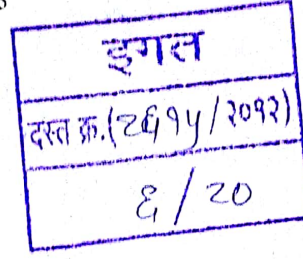 इगत
दस्त क्र.(८६१५/२०१२)
६/८०